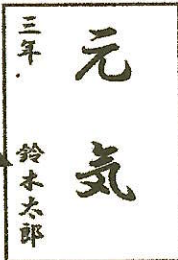 元気
三年 鈴木太郎